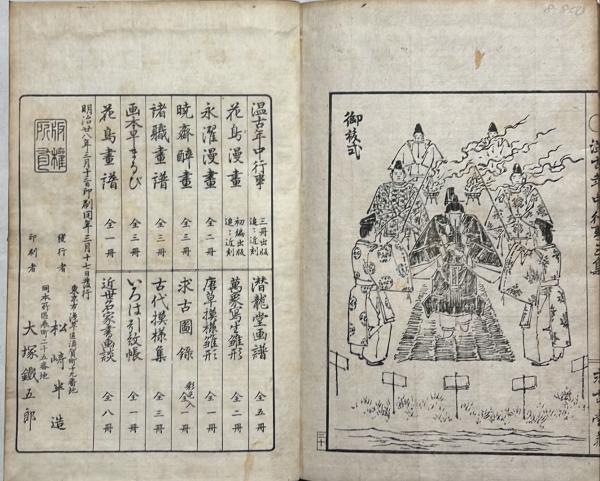 御祓式
三十
温古年中行事 三冊出版 追々近刻
花鳥漫畫 初編出版 追々近刻
永濯漫畫 全二冊
暁斎醉畫 全三冊
諸職畫譜 全三冊
画本 全三冊
花鳥畫譜 全一冊
潜龍堂画譜 全五冊
萬象写生雛形 全二冊
唐草摸様雛形 全一冊
求古圖録 彩色入 全一冊
古代摸様集 全三冊
いろは引紋帳 全一冊
近世名家書画談 全八冊
明治廿八年三月十三日印刷同年三月十七日發行
版權所有
發行者 東京市浅草区須賀町十九番地 松﨑半造
印刷者 二十五番地 大塚鐵五郎